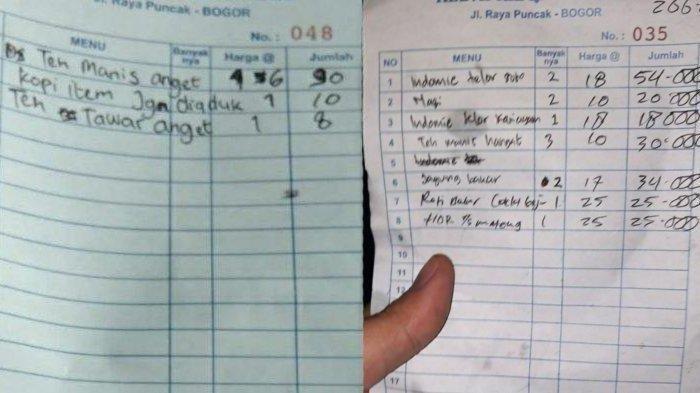 Jl. Raya Puncak - BOGOR
No. : 048
MENU Banyak nya Harga @ Jumlah
Teh manis anget 6 90
Kopi item Jgn diaduk 1 10
Teh Tawar anget 1 8
Jl. Raya Puncak - BOGOR
No. : 035
NO MENU Banyak nya Harga @ Jumlah
1 Indomie telor soto 2 18 54.000
2 Magi 2 10 20.000
3 Indomie telor 1 18 18000
4 Teh manis hangat 3 10 30.000
5 Indomie
6 Jagung bakar 2 17 34.000
7 Roti Bakar 1 25 25.000
8 1/2 mateng 1 25 25.000
9
10
11
12
17